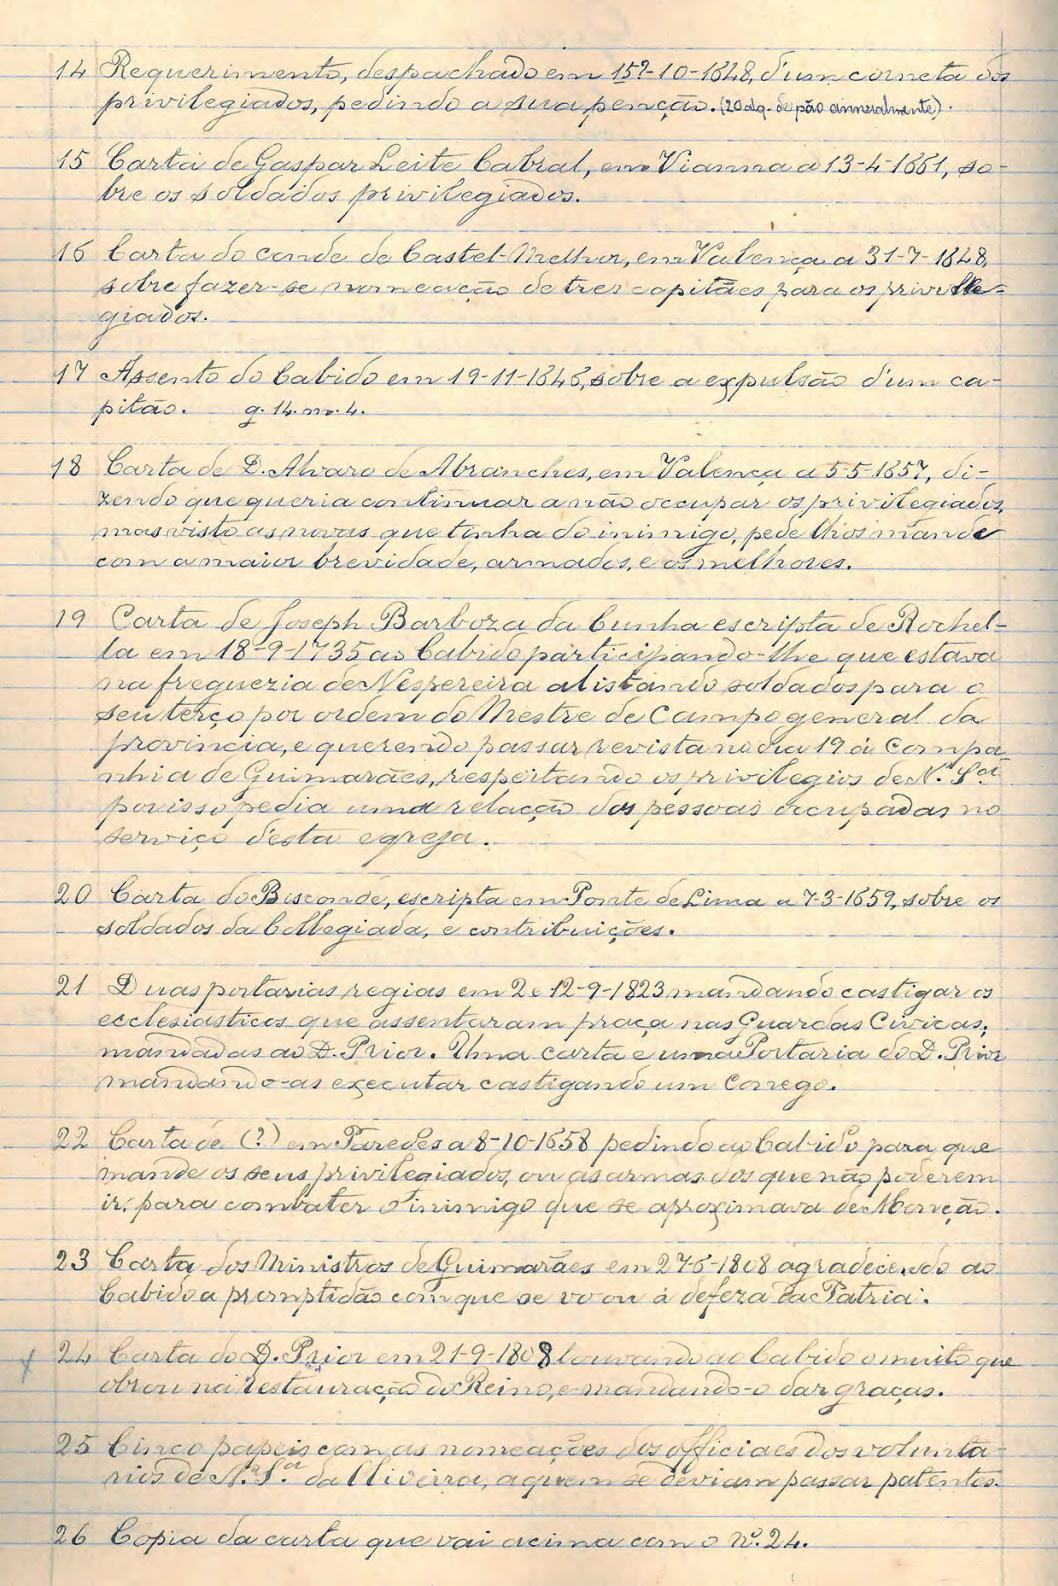 14 Requerimento, despachado em 15?-10-1648, d'um corneta dos
privilegiados, pedindo a sua penção. (20 alq. de pão annualmente).
15 Carta de Gaspar Leite Cabral, em Vianna a 13-4-1661, so-
bre os soldados privilegiados.
16 Carta do conde de Castel-Melhor, em Valença a 31-7-1648,
sobre fazer-se nomeação de tres capitães para os privile-
giados.
17 Assento do Cabido em 19-11-1646, sobre a expulsão d'um ca-
pitão. g. 14. nº. 4.
18 Carta de D. Alvaro de Abranches, em Valença a 5-5-1657, di-
zendo que queria continuar a não occupar os privilegiados,
mas visto as novas que tinha do inimigo, pede lhos mande
com a maior brevidade, armados, e os melhores.
19 Carta de Joseph Barboza da Cunha escripta de Rochel-
la em 18-9-1735 ao Cabido participando-lhe que estava
na freguezia de Nespereira alistando soldados para o
seu terço por ordem do Mestre de Campo general da
provincia, e querendo passar revista no dia 19 á Compa-
nhia de Guimarães, respeitando os privilegios de N.ª S.ra
por isso pedia uma relação das pessoas occupadas no
serviço d'esta egreja.
20 Carta do Bisconde, escripta em Ponte de Lima a 7-3-1659, sobre os
soldados da Collegiada, e contribuições.
21 Duas portarias regias em 2 e 12-9-1823 mandando castigar os
ecclesiasticos que assentaram praça nas Guardas Civicas,
mandadas ao D. Prior. Uma carta e uma Portaria do D. Prior
mandando-as executar castigando um Conego.
22 Carta de (?) em Paredes a 8-10-1658 pedindo ao Cabido para que
mande os seus privilegiados, ou as armas dos que não poderem
ir, para combater o inimigo que se aproximava de Monção.
23 Carta dos Ministros de Guimarães em 27-6-1808 agradecendo ao
Cabido a promptidão com que se voou á defeza da Patria.
24 Carta do D. Prior em 21-9-1808 louvando ao Cabido o muito que
obrou na Restauração do Reino, e mandando-o dar graças.
25 Cinco papeis com as nomeações dos officiaes dos volunta-
rios de N.ª S.ra da Oliveira, a quem se deviam passar patentes.
26 Copia da carta que vai acima com o nº. 24.